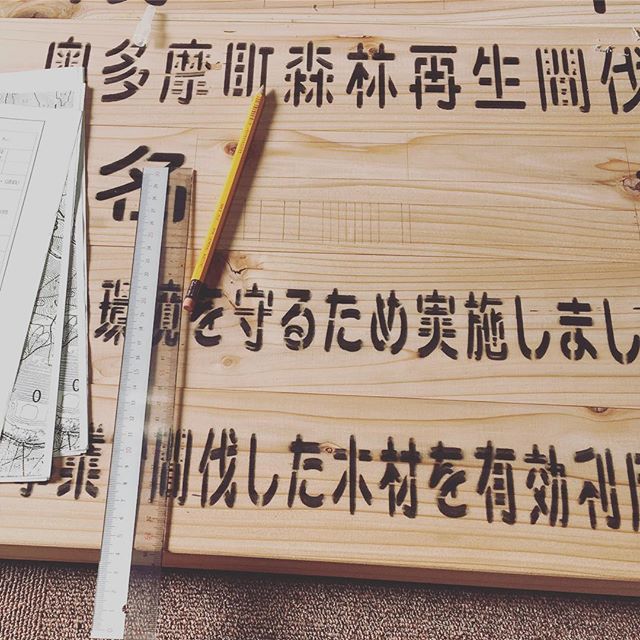 奥多摩町森林再生間伐
名
環境を守るため実施しまし
業 間伐した木材を有効利用
0
0